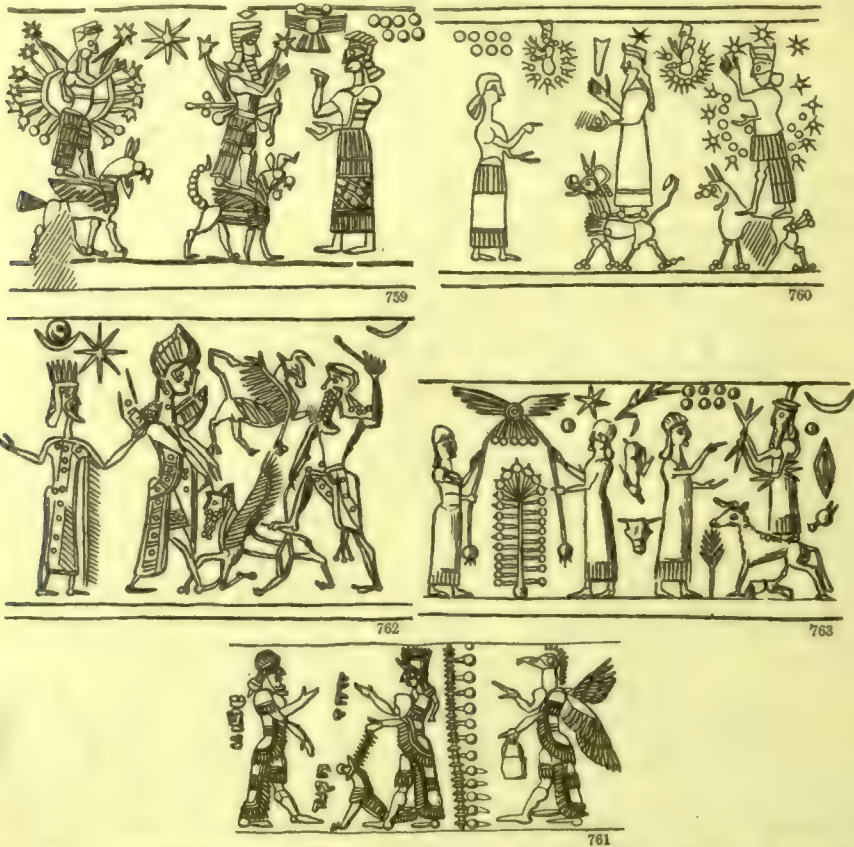 759
760
762
763
761